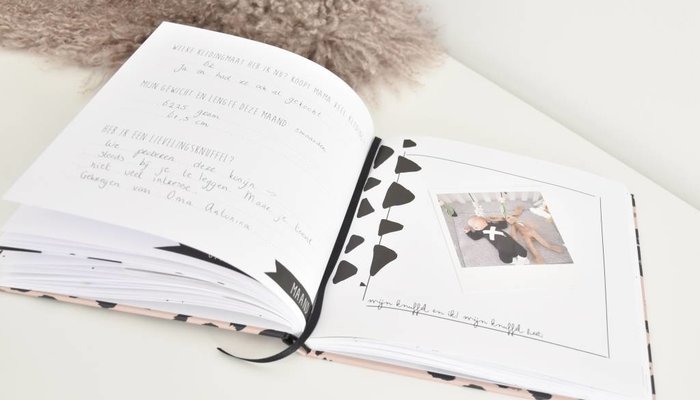 WELKE KLEDINGMAAT HEB IK NU? KOOPT MAMA VEEL KLEDING?
62
Ja en had ze ook al gekocht
MIJN GEWICHT EN LENGTE DEZE MAAND
6215 gram
61,5 cm
HEB IK EEN LIEVELINGSKNUFFEL?
We proberen deze konijn
steeds bij je te leggen. Maar je toont
niet veel interesse.
Gekregen van Oma Antonina
MAAND
mijn knuffel en ik! mijn knuffel heet: